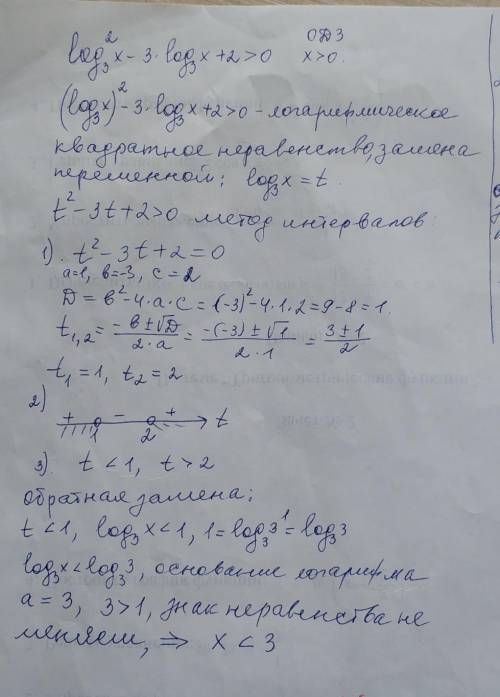 log₃²x - 3·log₃x + 2 > 0 ОДЗ x > 0.
(log₃x)² - 3·log₃x + 2 > 0 - логарифмическое
квадратное неравенство, замена
переменной; log₃x = t.
t² - 3t + 2 > 0 метод интервалов
1). t² - 3t + 2 = 0
a=1, в=-3, c=2
D = в² - 4·a·c = (-3)² - 4·1·2 = 9 - 8 = 1.
t₁,₂ = (-в ± √D)/(2·a) = (-(-3) ± √1)/(2·1) = (3 ± 1)/2
t₁ = 1, t₂ = 2
2)
+ - + t
1 2
3). t < 1, t > 2
обратная замена;
t < 1, log₃x < 1, 1 = log₃3¹ = log₃3
log₃x < log₃3, основание логарифма
a = 3, 3 > 1, знак неравенства не
меняем, ⇒ x < 3